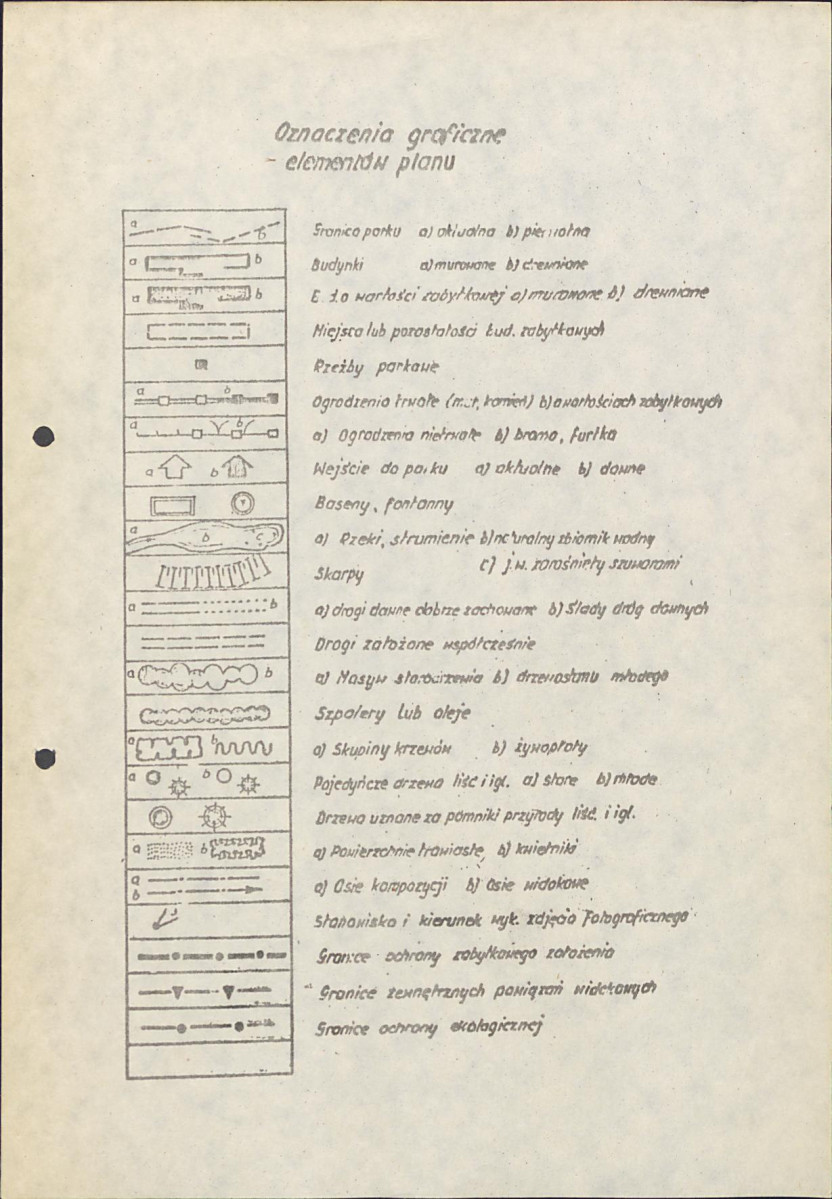 Oznaczenia graficzne
- elementów planu
a b Granica parku a) aktualna b) pierwotna
a b Budynki a) murowane b) drewniane
a b o wartości zabytkowej a) murowane b) drewniane
Miejsca lub pozostałości bud. zabytkowych
Rzeźby parkowe
a b Ogrodzenia trwałe (mur, kamień) b) o wartościach zabytkowych
a b a) Ogrodzenia nietrwałe b) brama, furtka
a b Wejście do parku a) aktualne b) dawne
Baseny, fontanny
a b c a) Rzeki, strumienie b) naturalny zbiornik wodny
c) j.w. zarośnięty szuwarami
Skarpy
a b a) drogi dawne dobrze zachowane b) Ślady dróg dawnych
Drogi założone współcześnie
a b a) Masyw starodrzewia b) drzewostanu młodego
Szpalery lub aleje
a b a) Skupiny krzewów b) żywopłoty
a b Pojedyńcze drzewa liść i igl. a) stare b) młode
Drzewa uznane za pomniki przyrody liść. i igl.
a b a) Powierzchnie trawiaste, b) kwietniki
a b a) Osie kompozycji b) Osie widokowe
Stanowisko i kierunek wyk. zdjęcia fotograficznego
Granice ochrony zabytkowego założenia
Granice zewnętrznych powiązań widokowych
Granice ochrony ekologicznej